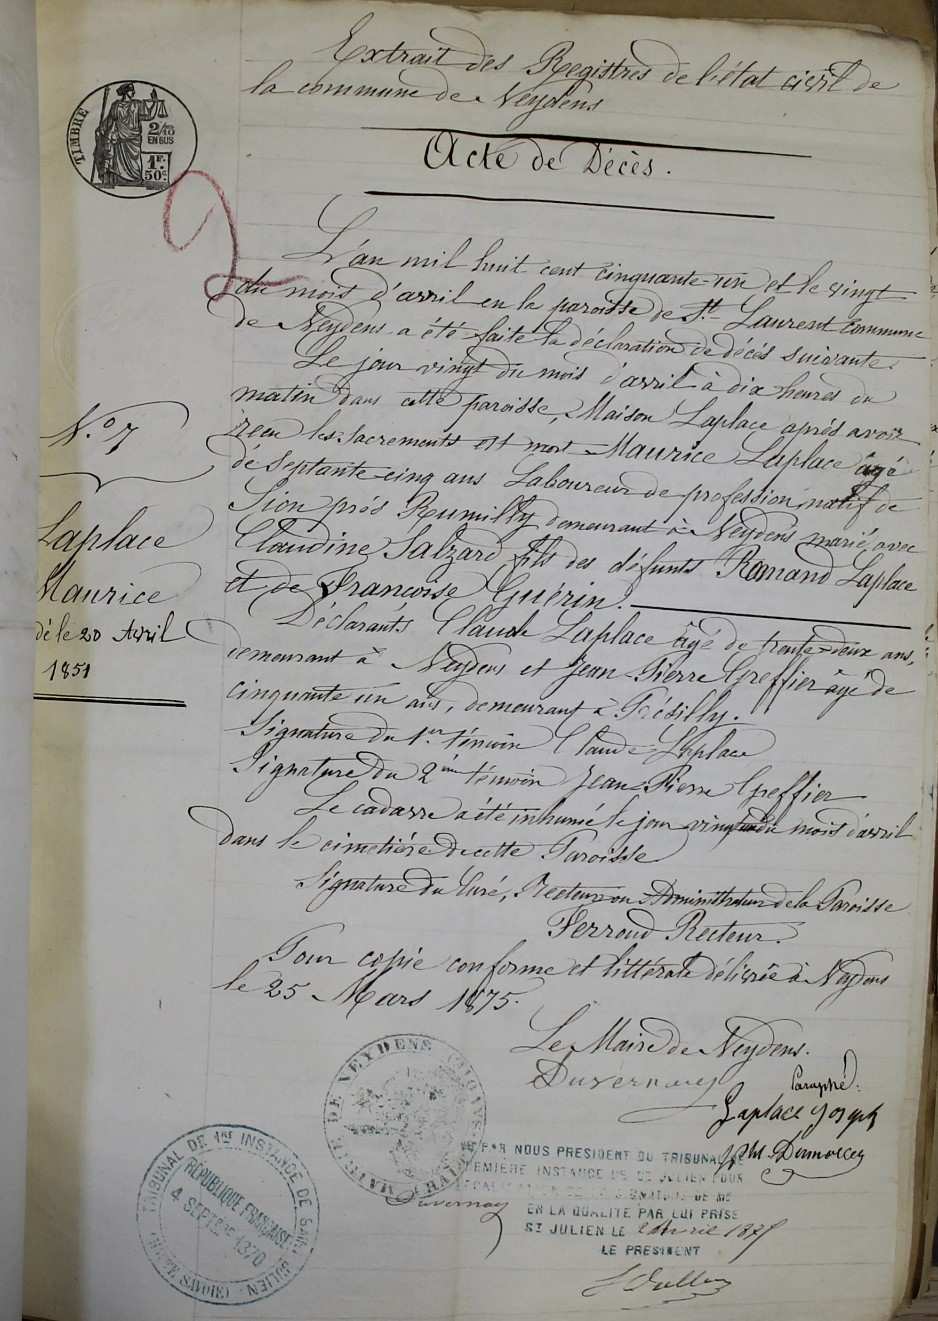 Extrait des Registres de l'état civil de
la commune de Neydens
TIMBRE
2/10
EN SUS
1F.
50c.
Acte de Décès.
2
L'an mil huit cent cinquante-un et le vingt
du mois d'avril en la paroisse de St Laurent commune
de Neydens a été faite la déclaration de décès suivante.
Le jour vingt du mois d'avril à dix heures du
matin dans cette paroisse, Maison Laplace après avoir
reçu les sacrements est mort Maurice Laplace âgé
de septante-cinq ans Laboureur de profession, natif de
Sion près Rumilly demeurant à Neydens marié avec
Claudine Salzard fils des défunts Romand Laplace
et de Françoise Guérin.
N.o 7
Laplace
Maurice
dé le 20 Avril
1851
Déclarants Claude Laplace âgé de trente-deux ans,
demeurant à Neydens et Jean Pierre Greffier âgé de
cinquante un ans, demeurant à Présilly.
Signature du 1er témoin Claude Laplace
Signature du 2ème témoin Jean Pierre Greffier
Le cadavre a été inhumé le jour du mois d'avril
dans le cimetière de cette Paroisse
Signature du Curé, Recteur ou Administrateur de la Paroisse
Perroud Recteur.
Pour copie conforme et littérale délivrée à Neydens
le 25 Mars 1875.
Le Maire de Neydens.
Duvernay
Paraphé:
Laplace Joseph
MAIRIE DE NEYDENS
TRIBUNAL DE 1re INSTANCE DE SAINT JULIEN (HAUTE SAVOIE)
RÉPUBLIQUE FRANÇAISE
4 SEPTBRE 1870
PAR NOUS PRESIDENT DU TRIBUNAL DE
PREMIÈRE INSTANCE DE ST JULIEN POUR
LEGALISATION DE LA SIGNATURE DE MR
Duvernay
EN LA QUALITÉ PAR LUI PRISE
ST JULIEN LE 2 Avril 1875
LE PRESIDENT